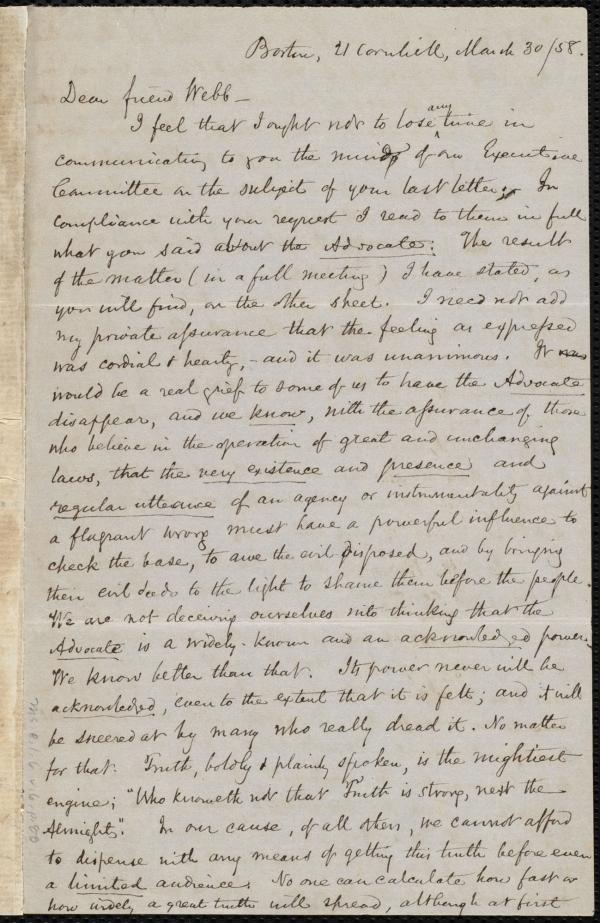 Boston, 21 Cornhill, March 30/58.
Dear friend Webb –
I feel that I ought not to lose any time in
communicating to you the mind of our Executive
Committee on the subject of your last letter. In
compliance with your request I read to them in full
what you said about the Advocate: The result
of the matter (in a full meeting) I have stated, as
you will find, on the other sheet. I need not add
my private assurance that the feeling as expressed
was cordial & hearty, – and it was unanimous. It
would be a real grief to some of us to have the Advocate
disappear, and we know, with the assurance of those
who believe in the operation of great and unchanging
laws, that the very existence and presence and
regular utterance of an agency or instrumentality against
a flagrant wrong must have a powerful influence to
check the base, to awe the evil disposed, and by bringing
their evil deeds to the light to shame them before the people.
We are not deceiving ourselves into thinking that the
Advocate is a widely-known and an acknowledged power.
We know better than that. Its power never will be
acknowledged, even to the extent that it is felt; and it will
be sneered at by many who really dread it. No matter
for that. Truth, boldly & plainly spoken, is the mightiest
engine; "Who knoweth not that Truth is strong, next the
Almighty". In our cause, of all others, we cannot afford
to dispense with any means of getting this truth before even
a limited audience. No one can calculate how fast or
how widely a great truth will spread, although at first